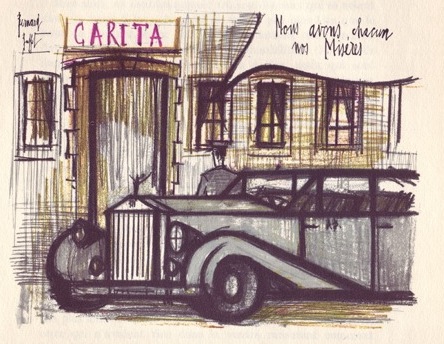 Bernard
Buffet
CARITA
Nous avons chacun
nos Misères